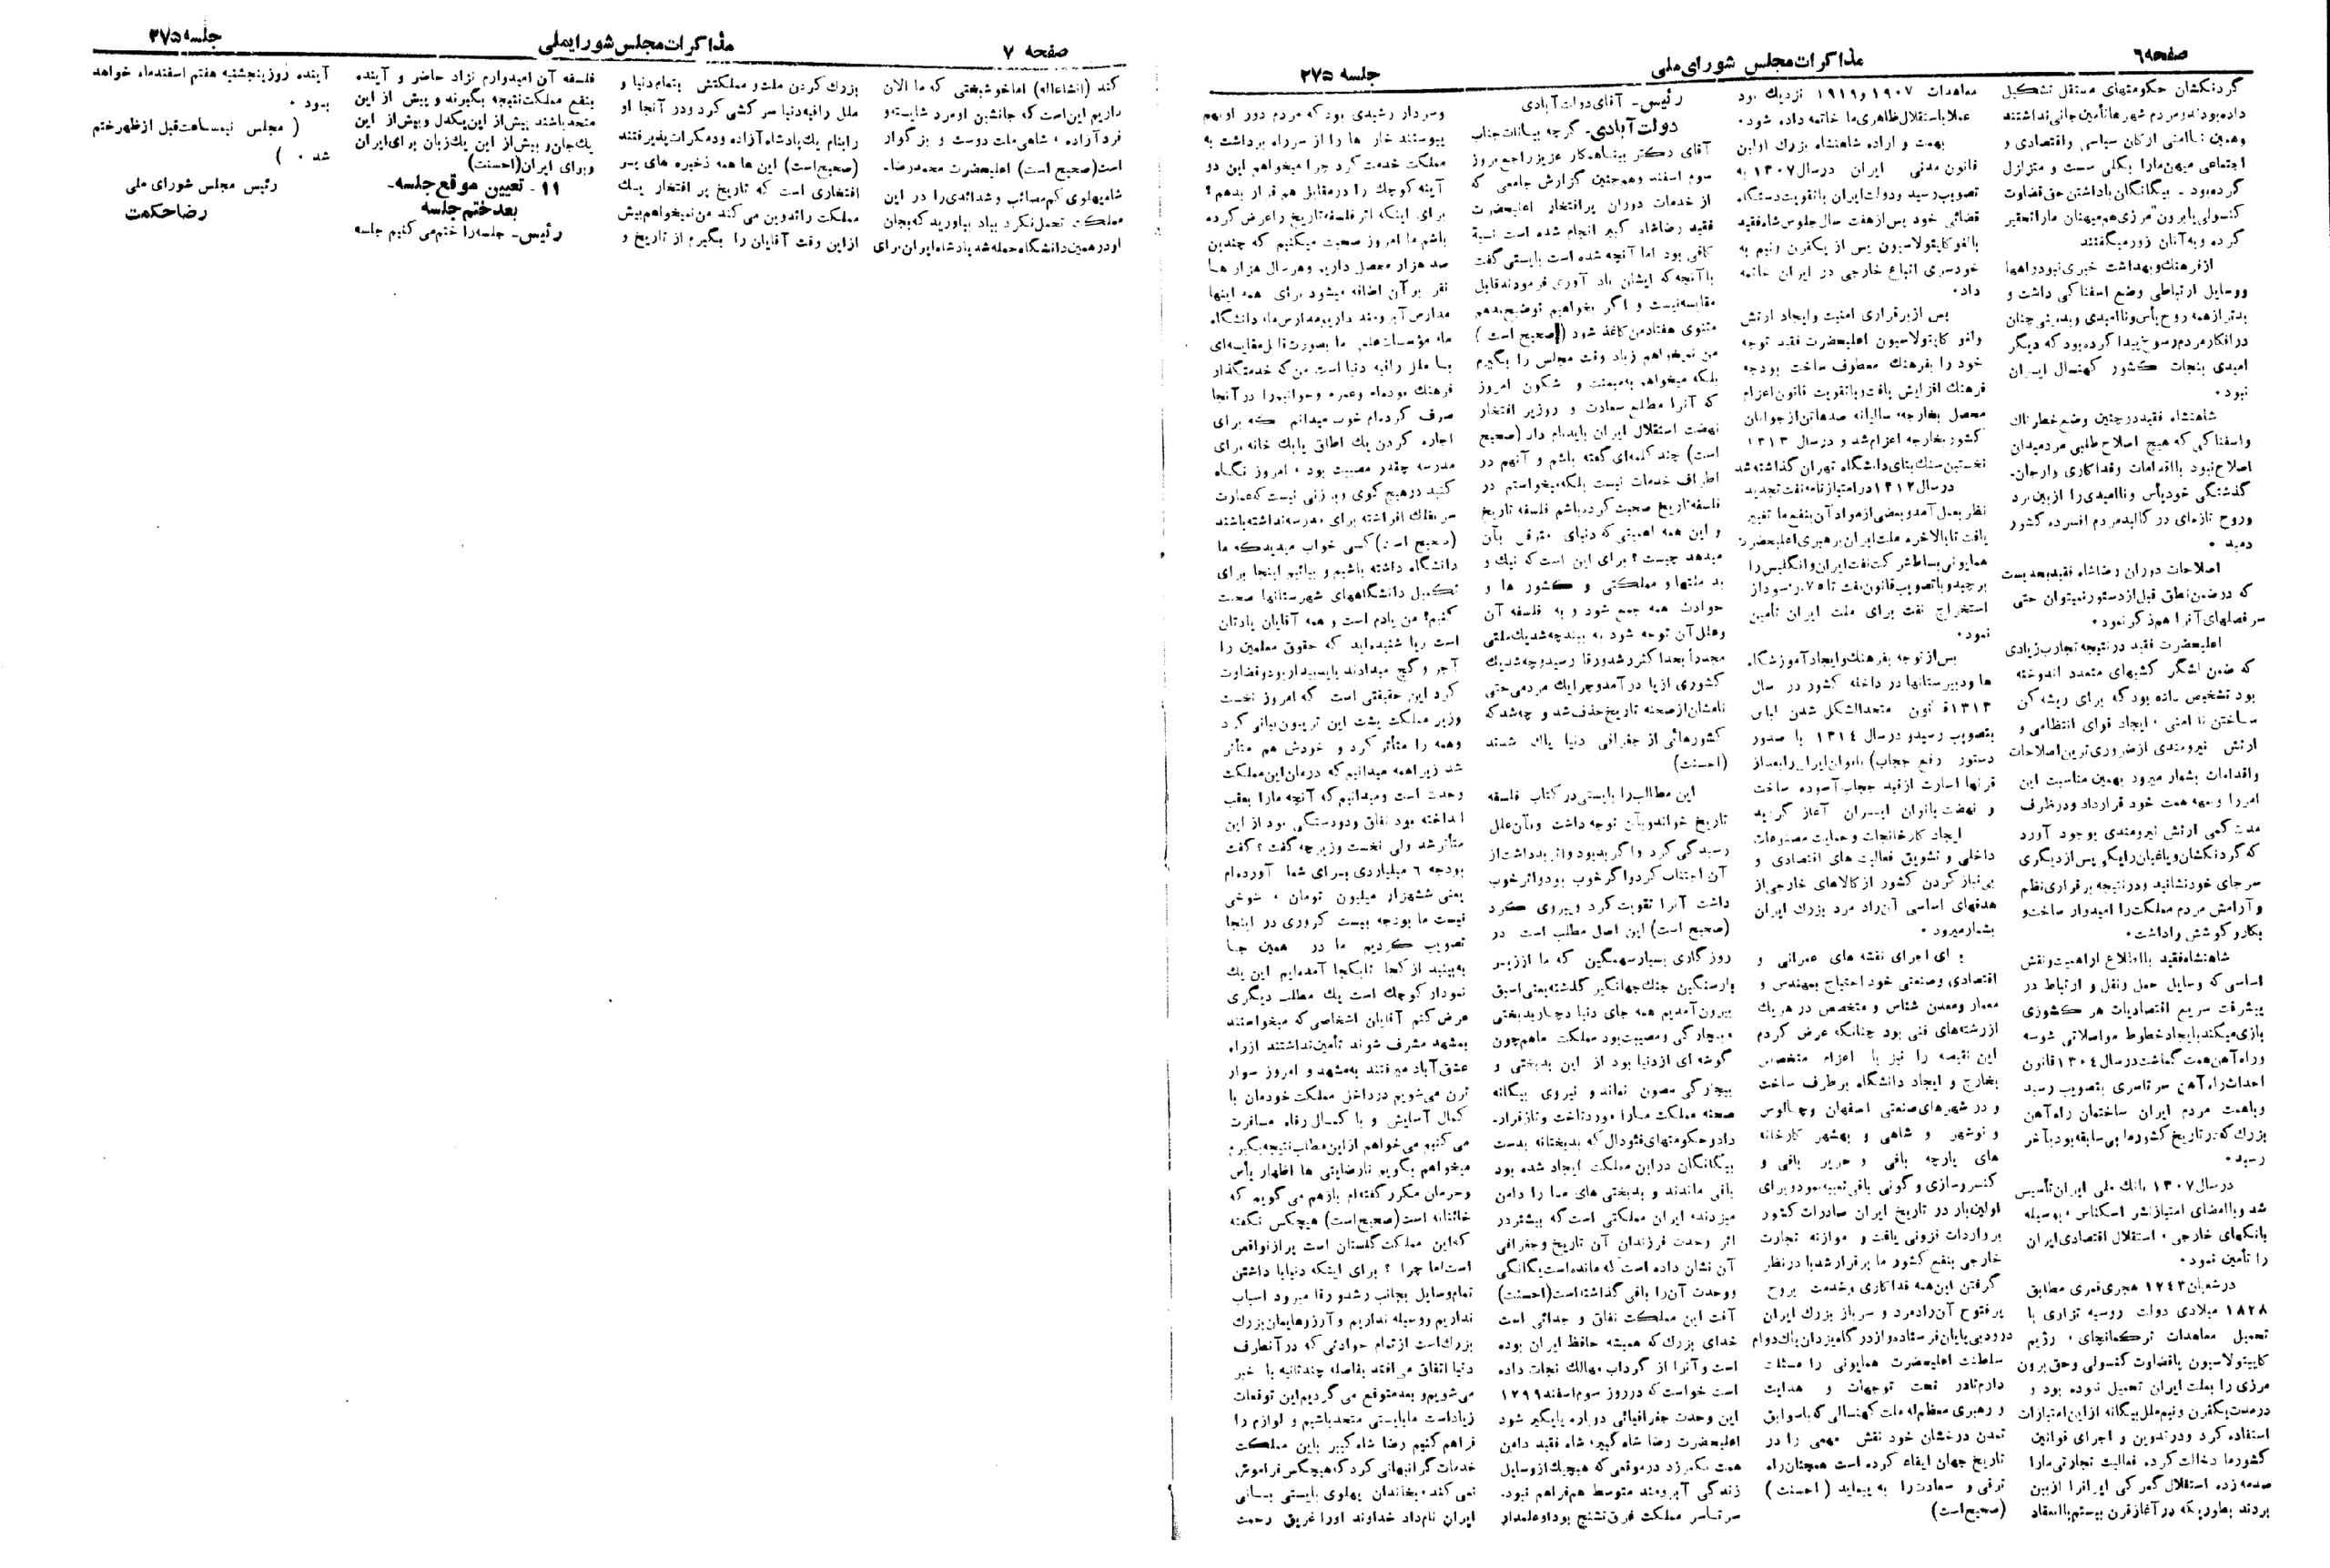 صفحه ٦
مذاکرات مجلس شورای ملی
جلسه ٢٧٥
گردنکشان حکومتهای مستقل تشکیل
داده بودند و مردم شهرها تأمین جانی نداشتند
و همین ناامنی ارکان سیاسی و اقتصادی و
اجتماعی میهن ما را بکلی سست و متزلزل
کرده بود - بیگانگان با داشتن حق قضاوت
کنسولی یا برون مرزی هم میهنان ما را تحقیر
کرده و به آنان زور میگفتند
از فرهنك و بهداشت خبری نبود راهها
و وسایل ارتباطی وضع اسفناکی داشت و
بدتر از همه روح یأس و ناامیدی و بدبینی چنان
در افکار مردم رسوخ پیدا کرده بود که دیگر
امیدی بنجات کشور کهنسال ایران
نبود.
شاهنشاه فقید در چنین وضع خطرناك
و اسفناکی که هیچ اصلاح طلبی مرد میدان
اصلاح نبود با اقدامات و فداکاری و از جان-
گذشتگی خود یأس و ناامیدی را از بین برد
و روح تازه‌ای در کالبد مردم افسرده کشور
دمید.
اصلاحات دوران رضاشاه فقید بحدیست
که در ضمن نطق قبل از دستور نمیتوان حتی
سر فصلهای آنرا هم ذکر نمود.
اعلیحضرت فقید در نتیجه تجارب زیادی
که ضمن لشگر کشیهای متعدد اندوخته
بود تشخیص داده بود که برای ریشه کن
ساختن ناامنی، ایجاد قوای انتظامی و
ارتش نیرومندی از ضروری‌ترین اصلاحات
و اقدامات بشمار میرود بهمین مناسبت این
امر را وجهه همت خود قرار داد و در ظرف
مدت کمی ارتش نیرومندی بوجود آورد
که گردنکشان و یاغیان را یکی پس از دیگری
سر جای خود نشانید و در نتیجه برقراری نظم
و آرامش مردم مملکت را امیدوار ساخت و
بکار و کوشش واداشت.
شاهنشاه فقید با اطلاع از اهمیت و نقش
اساسی که وسایل حمل و نقل و ارتباط در
پیشرفت سریع اقتصادیات هر کشوری
بازی میکند با ایجاد خطوط مواصلاتی شوسه
و راه آهن همت گماشت در سال ١٣٠٤ قانون
احداث راه آهن سرتاسری بتصویب رسید
و با همت مردم ایران ساختمان راه آهن
بزرك که در تاریخ کشور ما بی سابقه بود بآخر
رسید.
در سال ١٣٠٧ بانك ملی ایران تأسیس
شد و با امضای امتیاز نشر اسکناس، بوسیله
بانکهای خارجی، استقلال اقتصادی ایران
را تأمین نمود.
در شعبان ١٢٤٣ هجری قمری مطابق
١٨٢٨ میلادی دولت روسیه تزاری با
تحمیل معاهدات ترکمانچای، رژیم
کاپیتولاسیون یا قضاوت کنسولی و حق برون
مرزی را بملت ایران تحمیل نموده بود و
در مدت یکقرن و نیم ملل بیگانه از این امتیازات
استفاده کرد و در تدوین و اجرای قوانین
کشور ما دخالت کرده فعالیت تجارتی ما را
صدمه زده استقلال گمرکی ایران را از بین
بردند بطوریکه در آغاز قرن بیستم با انعقاد
معاهدات ١٩٠٧ و ١٩١٩ نزدیك بود
عملا باستقلال ظاهری ما خاتمه داده شود.
بهمت و اراده شاهنشاه بزرك اولین
قانون مدنی ایران در سال ١٣٠٧ به
تصویب رسید و دولت ایران با تقویت دستگاه
قضائی خود پس از هفت سال جلوس شاه فقید
با لغو کاپیتولاسیون پس از یکقرن و نیم به
خودسری اتباع خارجی در ایران خاتمه
داد.
پس از برقراری امنیت و ایجاد ارتش
و لغو کاپیتولاسیون اعلیحضرت فقید توجه
خود را بفرهنك معطوف ساخت بودجه
فرهنك افزایش یافت و با تقویت قانون اعزام
محصل بخارجه، سالیانه صدها تن از جوانان
کشور بخارجه اعزام شد و در سال ١٣١٣
نخستین سنك بنای دانشگاه تهران گذاشته شد
در سال ١٣١٢ در امتیازنامه نفت تجدید
نظر بعمل آمد و بعضی از مواد آن بنفع ما تغییر
یافت تا بالاخره ملت ایران برهبری اعلیحضرت
همایونی بساط شرکت نفت ایران و انگلیس را
برچید و با تصویب قانون نفت تا ٧٥٪ سود از
استخراج نفت برای ملت ایران تأمین
نمود.
پس از توجه بفرهنك و ایجاد آموزشگاه
ها و دبیرستانها در داخله کشور در سال
١٣١٣ قانون متحدالشکل شدن لباس
بتصویب رسید و در سال ١٣١٤ با صدور
دستور رفع حجاب) بانوان ایران را بعد از
قرنها اسارت از قید حجاب آسوده ساخت
و نهضت بانوان ایران آغاز گردید
ایجاد کارخانجات و حمایت مصنوعات
داخلی و تشویق فعالیت های اقتصادی و
بی‌نیاز کردن کشور از کالاهای خارجی از
هدفهای اساسی آن راد مرد بزرك ایران
بشمار میرود.
برای اجرای نقشه های عمرانی و
اقتصادی و صنعتی خود احتیاج بمهندس و
معمار و معدن شناس و متخصص در هر یك
از رشته‌های فنی بود چنانکه عرض کردم
این نقیصه را نیز با اعزام متخصص
بخارج و ایجاد دانشگاه برطرف ساخت
و در شهرهای صنعتی اصفهان و چالوس
و نوشهر و شاهی و بهشهر کارخانه
های پارچه بافی و حریر بافی و
کنسروسازی و گونی بافی تعبیه نمود و برای
اولین بار در تاریخ ایران صادرات کشور
بر واردات فزونی یافت و موازنه تجارت
خارجی بنفع کشور ما برقرار شد با در نظر
گرفتن این همه فداکاری و خدمت بروح
پرفتوح آن رادمرد و سرباز بزرك ایران
درود بی پایان فرستاده و از درگاه یزدان پاك دوام
سلطنت اعلیحضرت همایونی را مسئلت
دارم تا در تحت توجهات و هدایت
و رهبری معظم‌له ملت کهنسالی که با سوابق
تمدن درخشان خود نقش مهمی را در
تاریخ جهان ایفاء کرده است همچنان راه
ترقی و سعادت را به پیماید (احسنت)
(صحیح است)
رئیس- آقای دولت آبادی
دولت آبادی- گرچه بیانات جناب
آقای دکتر بینا همکار عزیز راجع بروز
سوم اسفند و همچنین گزارش جامعی که
از خدمات دوران پر افتخار اعلیحضرت
فقید رضاشاه کبیر انجام شده است نسبة
کافی بود اما آنچه شده است بایستی گفت
با آنچه که ایشان یاد آوری فرمودند قابل
مقایسه نیست و اگر بخواهیم توضیح بدهم
مثنوی هفتاد من کاغذ شود (صحیح است)
من نمیخواهم زیاد وقت مجلس را بگیرم
بلکه میخواهم به میمنت و شگون امروز
که آنرا مطلع سعادت و روز پر افتخار
نهضت استقلال ایران باید نام داد (صحیح
است) چند کلمه‌ای گفته باشم و آنهم در
اطراف خدمات نیست بلکه میخواستم در
فلسفه تاریخ صحبت کرده باشم فلسفه تاریخ
و این همه اهمیتی که دنیای مترقی بآن
میدهد چیست؟ برای این است که نیك و
بد ملتها و مملکتی و کشور ها و
حوادث همه جمع شود و به فلسفه آن
و علل آن توجه شود به بیند چه شد یك ملتی
مجدداً بحد اکثر رشد و رقا رسید و چه شد یك
کشوری از پا در آمد و چرا یك مردمی حتی
نامشان از صحنه تاریخ حذف شد و چه شد که
کشورهائی از جغرافی دنیا پاك شدند
(احسنت)
این مطالب را بایستی در کتاب فلسفه
تاریخ خواند و بآن توجه داشت و بآن علل
رسیدگی کرد و اگر بد بود و اثر بد داشت از
آن اجتناب کرد و اگر خوب بود و اثر خوب
داشت آنرا تقویت کرد و پیروی کرد
(صحیح است) این اصل مطلب است در
روزگاری بسیار سهمگین که ما از زیر
بار سنگین جنك جهانگیر گذشته یعنی اسبق
بیرون آمدیم همه جای دنیا دچار بدبختی
و بیچارگی و مصیبت بود مملکت ما هم چون
گوشه‌ای از دنیا بود از این بدبختی و
بیچارگی مصون نماند و نیروی بیگانه
صحنه مملکت ما را مورد تاخت و تاز قرار-
داد و حکومتهای فئودال که بدبختانه بدست
بیگانگان در این مملکت ایجاد شده بود
باقی ماندند و بدبختی های ما را دامن
میزدند ایران مملکتی است که بیشتر در
اثر وحدت فرزندان آن تاریخ و جغرافی
آن نشان داده است که مانده است یگانگی
و وحدت آن را باقی گذاشته است (احسنت)
آفت این مملکت نفاق و جدائی است
خدای بزرك که همیشه حافظ ایران بوده
است و آنرا از گرداب مهالك نجات داده
است خواست که در روز سوم اسفند ١٢٩٩
این وحدت جغرافیائی دوباره پایگیر شود
اعلیحضرت رضا شاه کبیر، شاه فقید دامن
همت بکمر زد در موقعی که هیچیك از وسایل
زندگی آبرومند متوسط هم فراهم نبود.
سرتاسر مملکت غرق تشنج بود و علمدار
و سردار رشیدی بود که مردم دور او بهم
پیوستند خار ها را از سر راه برداشت به
مملکت خدمت کرد چرا میخواهم این دو
آینه کوچك را در مقابل هم قرار بدهم؟
برای اینکه اثر فلسفه تاریخ را عرض کرده
باشم ما امروز صحبت میکنیم که چندین
صد هزار محصل داریم و هر سال هزار ها
نفر بر آن اضافه میشود برای همه اینها
مدارس آبرومند داریم مدارس ما، دانشگاه
ما، مؤسسات علمی ما بصورت قابل مقایسه‌ای
با ملل راقیه دنیا است من که خدمتگذار
فرهنك بوده‌ام و عمر و جوانیم را در آنجا
صرف کرده‌ام خوب میدانم که برای
اجاره کردن یك اطاق یا یك خانه برای
مدرسه چقدر مصیبت بود، امروز نگاه
کنید در هیچ کوی و برزنی نیست که عمارت
سر بفلك افراشته برای مدرسه نداشته باشند
(صحیح است) کسی خواب میدید که ما
دانشگاه داشته باشیم و بیائیم اینجا برای
تکمیل دانشگاههای شهرستانها صحبت
کنیم؟ من یادم است و همه آقایان یادتان
است و یا شنیده‌اید که حقوق معلمین را
آجر و گچ میدادند بایستی بیدار بود و قضاوت
کرد این حقیقتی است که امروز نخست
وزیر مملکت پشت این تریبون بیانی کرد
و همه را متأثر کرد و خودش هم متأثر
شد زیرا همه میدانیم که درمان این مملکت
وحدت است و میدانیم که آنچه ما را بعقب
انداخته بود نفاق و دودستگی بود از این
متأثر شد ولی نخست وزیر چه گفت؟ گفت
بودجه ٦ میلیاردی برای شما آورده‌ام
یعنی ششهزار میلیون تومان. شوخی
نیست ما بودجه بیست کروری در اینجا
تصویب کردیم ما در همین جا
به‌بینید از کجا تا بکجا آمده‌ایم این یك
نمودار کوچك است یك مطلب دیگری
عرض کنم آقایان اشخاصی که میخواستند
بمشهد مشرف شوند تأمین نداشتند از راه
عشق آباد میرفتند به مشهد و امروز سوار
ترن می‌شویم در داخل مملکت خودمان با
کمال آسایش و با کمال رفاه مسافرت
می کنیم می‌خواهم از این مطلب نتیجه بگیرم
میخواهم بگویم نارضایتی ها اظهار یأس
و حرمان مکرر گفته‌ام باز هم می گویم که
خائنانه است (صحیح است) هیچکس نگفته
که این مملکت گلستان است پر از نواقص
است اما چرا؟ برای اینکه دنیا با داشتن
تمام وسایل بجانب رشد و رقا میرود اسباب
نداریم و وسیله نداریم و آرزوهایمان بزرك
بزرك است از تمام حوادثی که در آنطرف
دنیا اتفاق می افتد بفاصله چند ثانیه با خبر
می شویم و بعد متوقع می گردیم این توقعات
زیاد است ما بایستی متحد باشیم و لوازم را
فراهم کنیم رضا شاه کبیر باین مملکت
خدمات گرانبهائی کرد که هیچکس فراموش
نمی کند، بخاندان پهلوی بایستی بانی
ایران نام داد خداوند او را غریق رحمت
صفحه ٧
مذاکرات مجلس شورایملی
جلسه ٢٧٥
کند (انشاءاله) اما خوشبختی که ما الان
داریم این است که جانشین او مرد شایسته و
فرد آزاده، شاهی ملت دوست و بزرگوار
است (صحیح است) اعلیحضرت محمدرضا-
شاه پهلوی کم مصائب و شدائدی را در این
مملکت تحمل نکرد بیاد بیاورید که بجان
او در همین دانشگاه حمله شد پادشاه ایران برای
بزرك کردن ملت و مملکتش بتمام دنیا و
ملل راقیه دنیا سرکشی کرد و در آنجا او
را بنام یك پادشاه آزاده و دمکرات پذیرفتند
(صحیح است) این ها همه ذخیره های پر
افتخاری است که تاریخ پر افتخار یك
مملکت را تدوین می کند من نمیخواهم بیش
از این وقت آقایان را بگیرم از تاریخ و
فلسفه آن امیدوارم نژاد حاضر و آینده
بنفع مملکت نتیجه بگیرند و بیش از این
متحد باشند بیش از این یکدل و بیش از این
یك جان و بیش از این یك زبان برای ایران
و برای ایران (احسنت)
١١ - تعیین موقع جلسه-
بعد ختم جلسه
رئیس- جلسه را ختم می کنیم جلسه
آینده روز پنجشنبه هفتم اسفندماه خواهد
بود.
(مجلس نیمساعت قبل از ظهر ختم
شد.)
رئیس مجلس شورای ملی
رضا حکمت